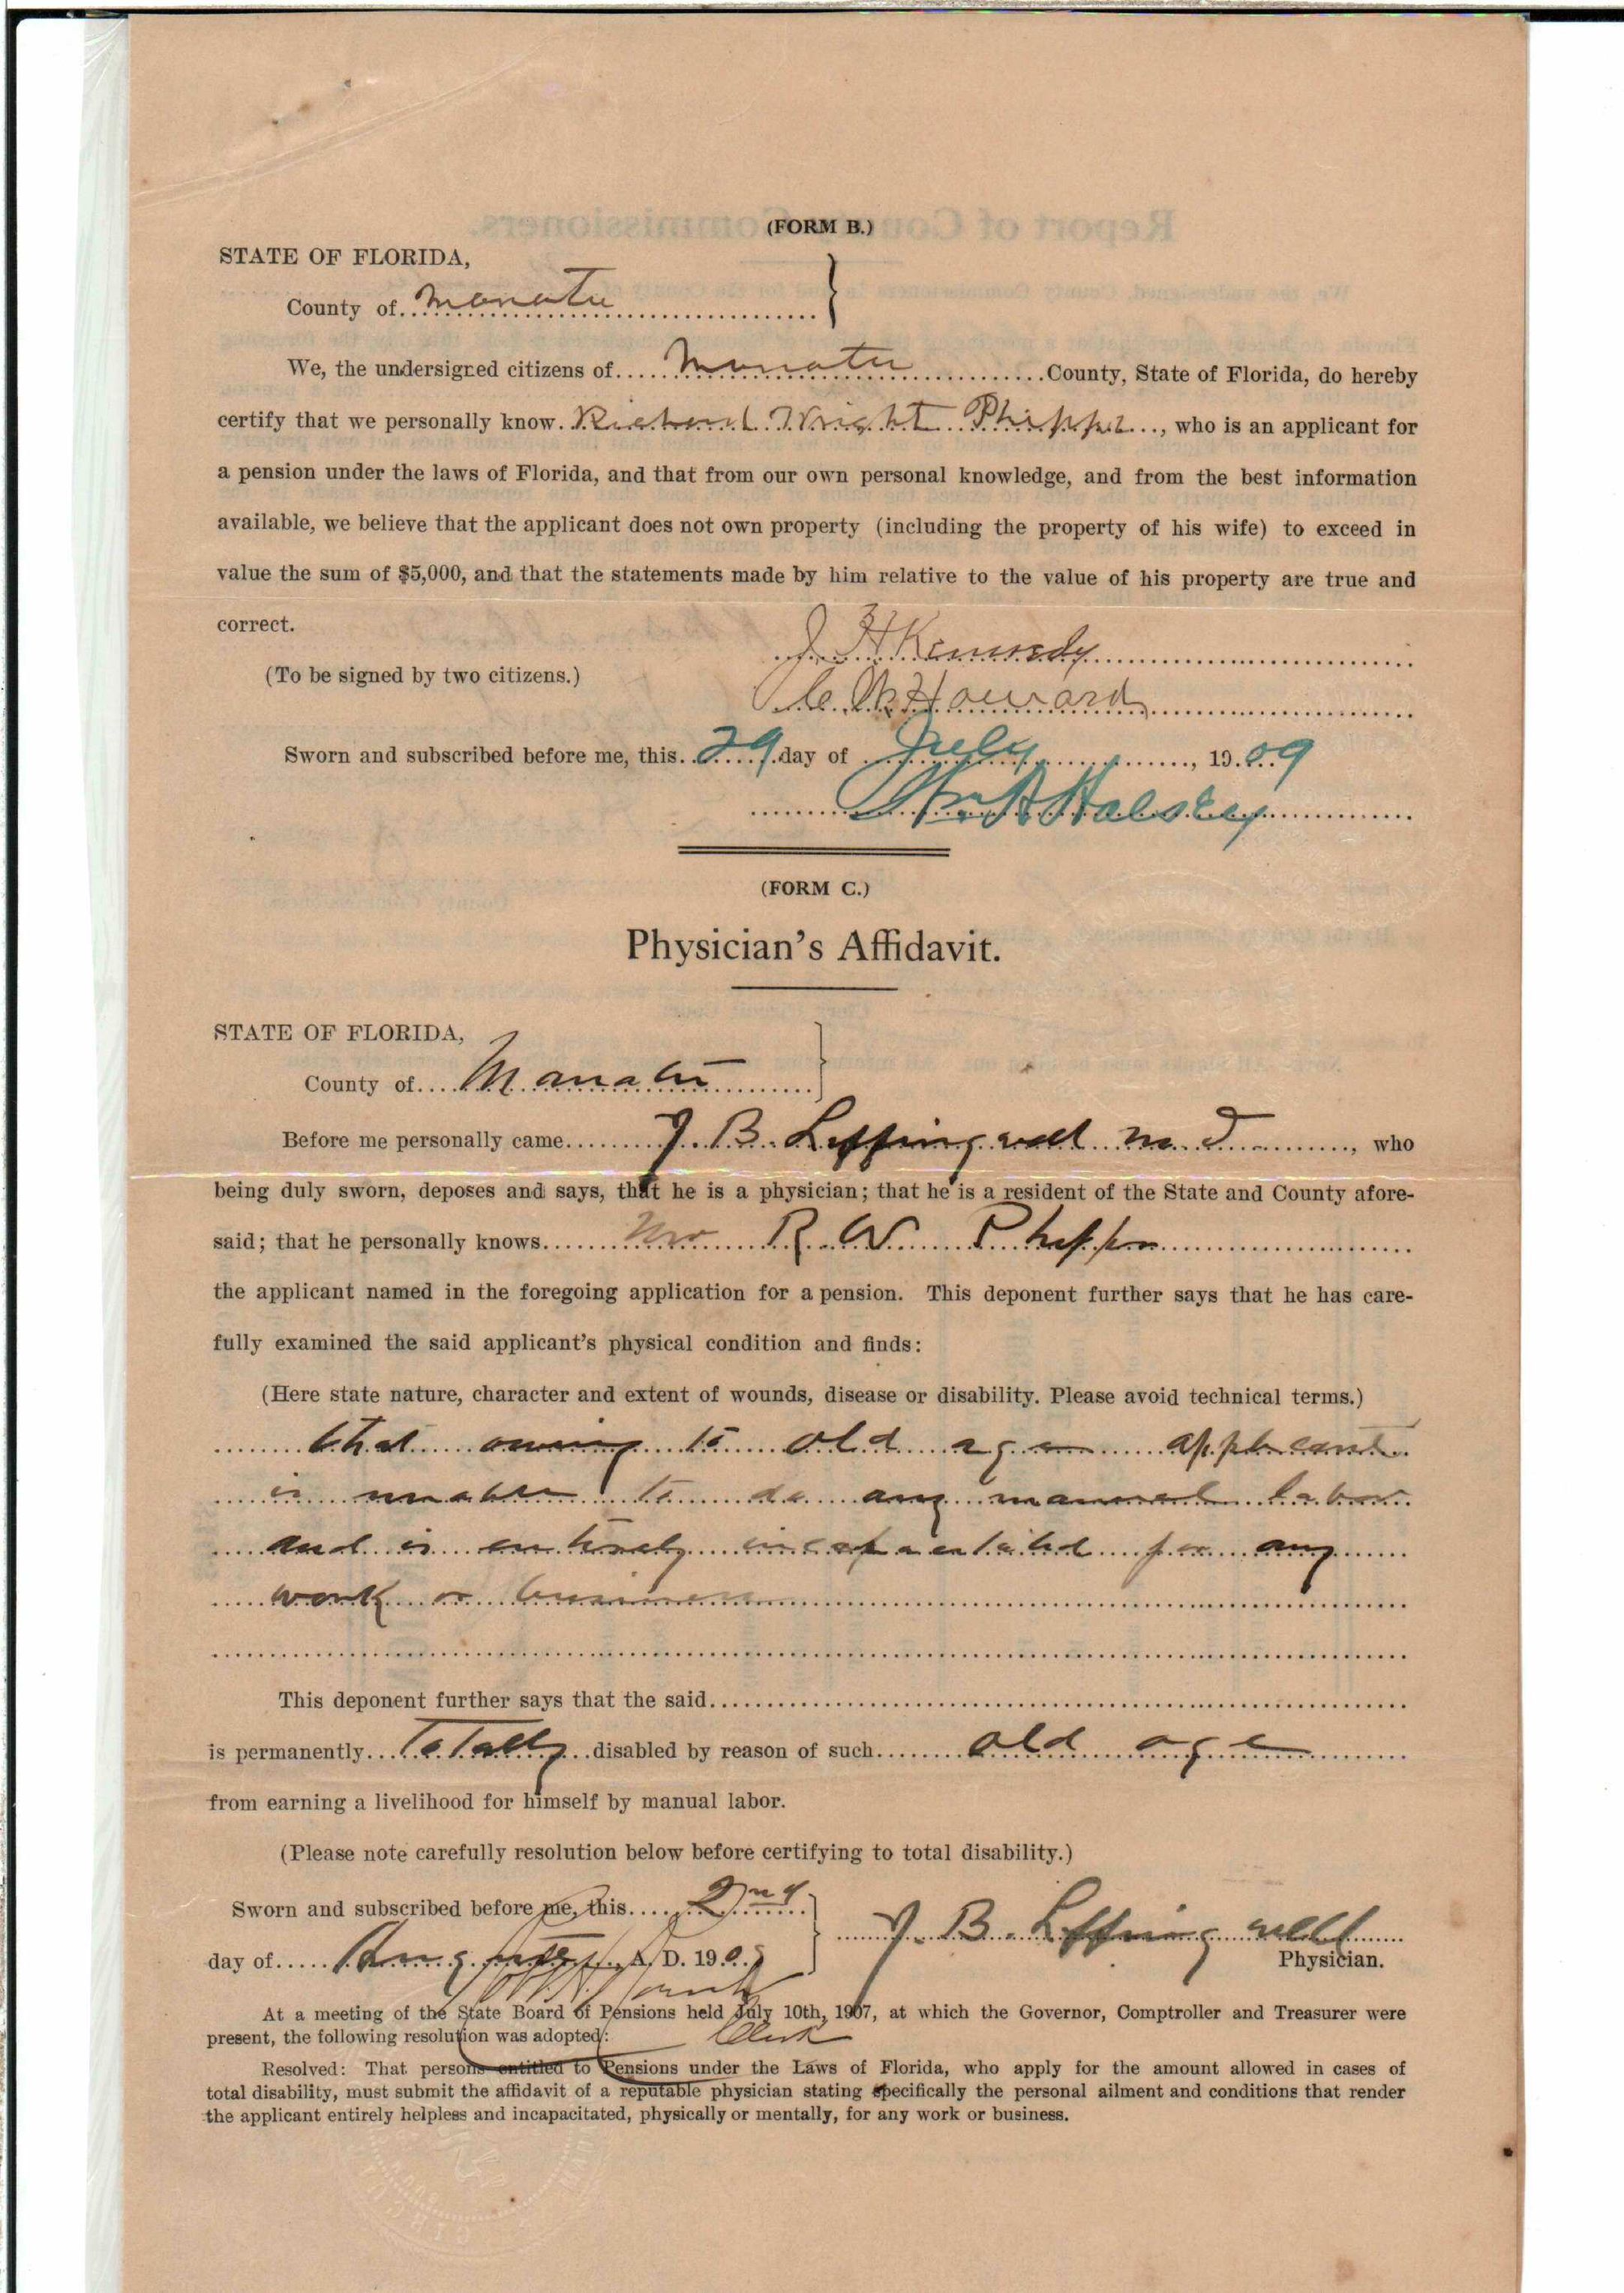 (FORM B.)
STATE OF FLORIDA,
County of Manatee
We, the undersigned citizens of Manatee County, State of Florida, do hereby
certify that we personally know Richard Wright Phipps, who is an applicant for
a pension under the laws of Florida, and that from our own personal knowledge, and from the best information
available, we believe that the applicant does not own property (including the property of his wife) to exceed in
value the sum of $5,000, and that the statements made by him relative to the value of his property are true and
correct.
J H Kennedy
(To be signed by two citizens.)
Howard
Sworn and subscribed before me, this 29 day of July, 1909
Wm A Halsey
(FORM C.)
Physician's Affidavit.
STATE OF FLORIDA,
County of Manatee
Before me personally came J. B. Leffingwell M. D., who
being duly sworn, deposes and says, that he is a physician; that he is a resident of the State and County afore-
said; that he personally knows Mr R. W. Phipps
the applicant named in the foregoing application for a pension. This deponent further says that he has care-
fully examined the said applicant's physical condition and finds:
(Here state nature, character and extent of wounds, disease or disability. Please avoid technical terms.)
that owing to old age applicant
is unable to do any manual labor
and is entirely incapacitated for any
work or business
This deponent further says that the said
is permanently Totally disabled by reason of such old age
from earning a livelihood for himself by manual labor.
(Please note carefully resolution below before certifying to total disability.)
Sworn and subscribed before me, this 2nd
J. B. Leffingwell
day of August A. D. 1909
Physician.
At a meeting of the State Board of Pensions held July 10th, 1907, at which the Governor, Comptroller and Treasurer were
present, the following resolution was adopted:
Clerk
Resolved: That persons entitled to Pensions under the Laws of Florida, who apply for the amount allowed in cases of
total disability, must submit the affidavit of a reputable physician stating specifically the personal ailment and conditions that render
the applicant entirely helpless and incapacitated, physically or mentally, for any work or business.